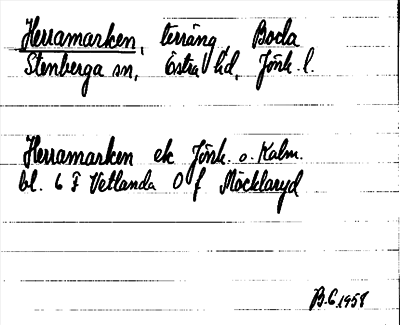 Herramarken, terräng, Boda
Stenberga sn, Östra hd, Jönk. l.
Herramarken ek Jönk. o. Kalm.
bl. 6 F Vetlanda O f Möcklaryd
B.G 1958